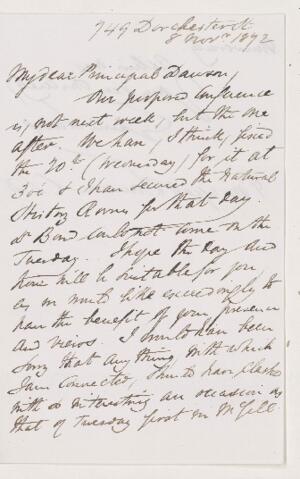 749 Dorchester St
8 Novr 1872
My dear Principal Dawson,
Our proposed Conference
is, not next week, but the one
after. We have, I think, fixed
the 20th (Wednesday) for it at
3 o'c & I have secured the Natural
History Rooms for that day.
Dr Bond could not come on the
Tuesday. I hope the day and
hour will be suitable for you
as we would like exceedingly to
have the benefit of your presence
and views. I would have been
sorry that any thing with which
I am connected, should have clashed
with so interesting an occasion as
that of Tuesday first in McGill.